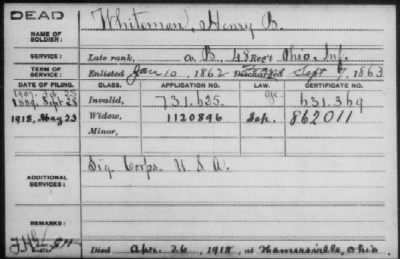 DEAD
NAME OF SOLDIER: Whiteman, Henry B.
SERVICE: Late rank, Co. B, 48 Reg't Ohio Inf.
TERM OF SERVICE: Enlisted Jan 10, 1862 Discharged Sept 7, 1863
DATE OF FILING. CLASS. APPLICATION NO. LAW. CERTIFICATE NO.
1907
1889, Sept 28 Invalid, 731.625. 631.369
1918, May 23 Widow, 1120896 Sep. 862011
Minor,
ADDITIONAL SERVICES: Sig. Corps. U.S.A.
REMARKS:
Died Apr. 26, 1918, at Hamersville, Ohio.